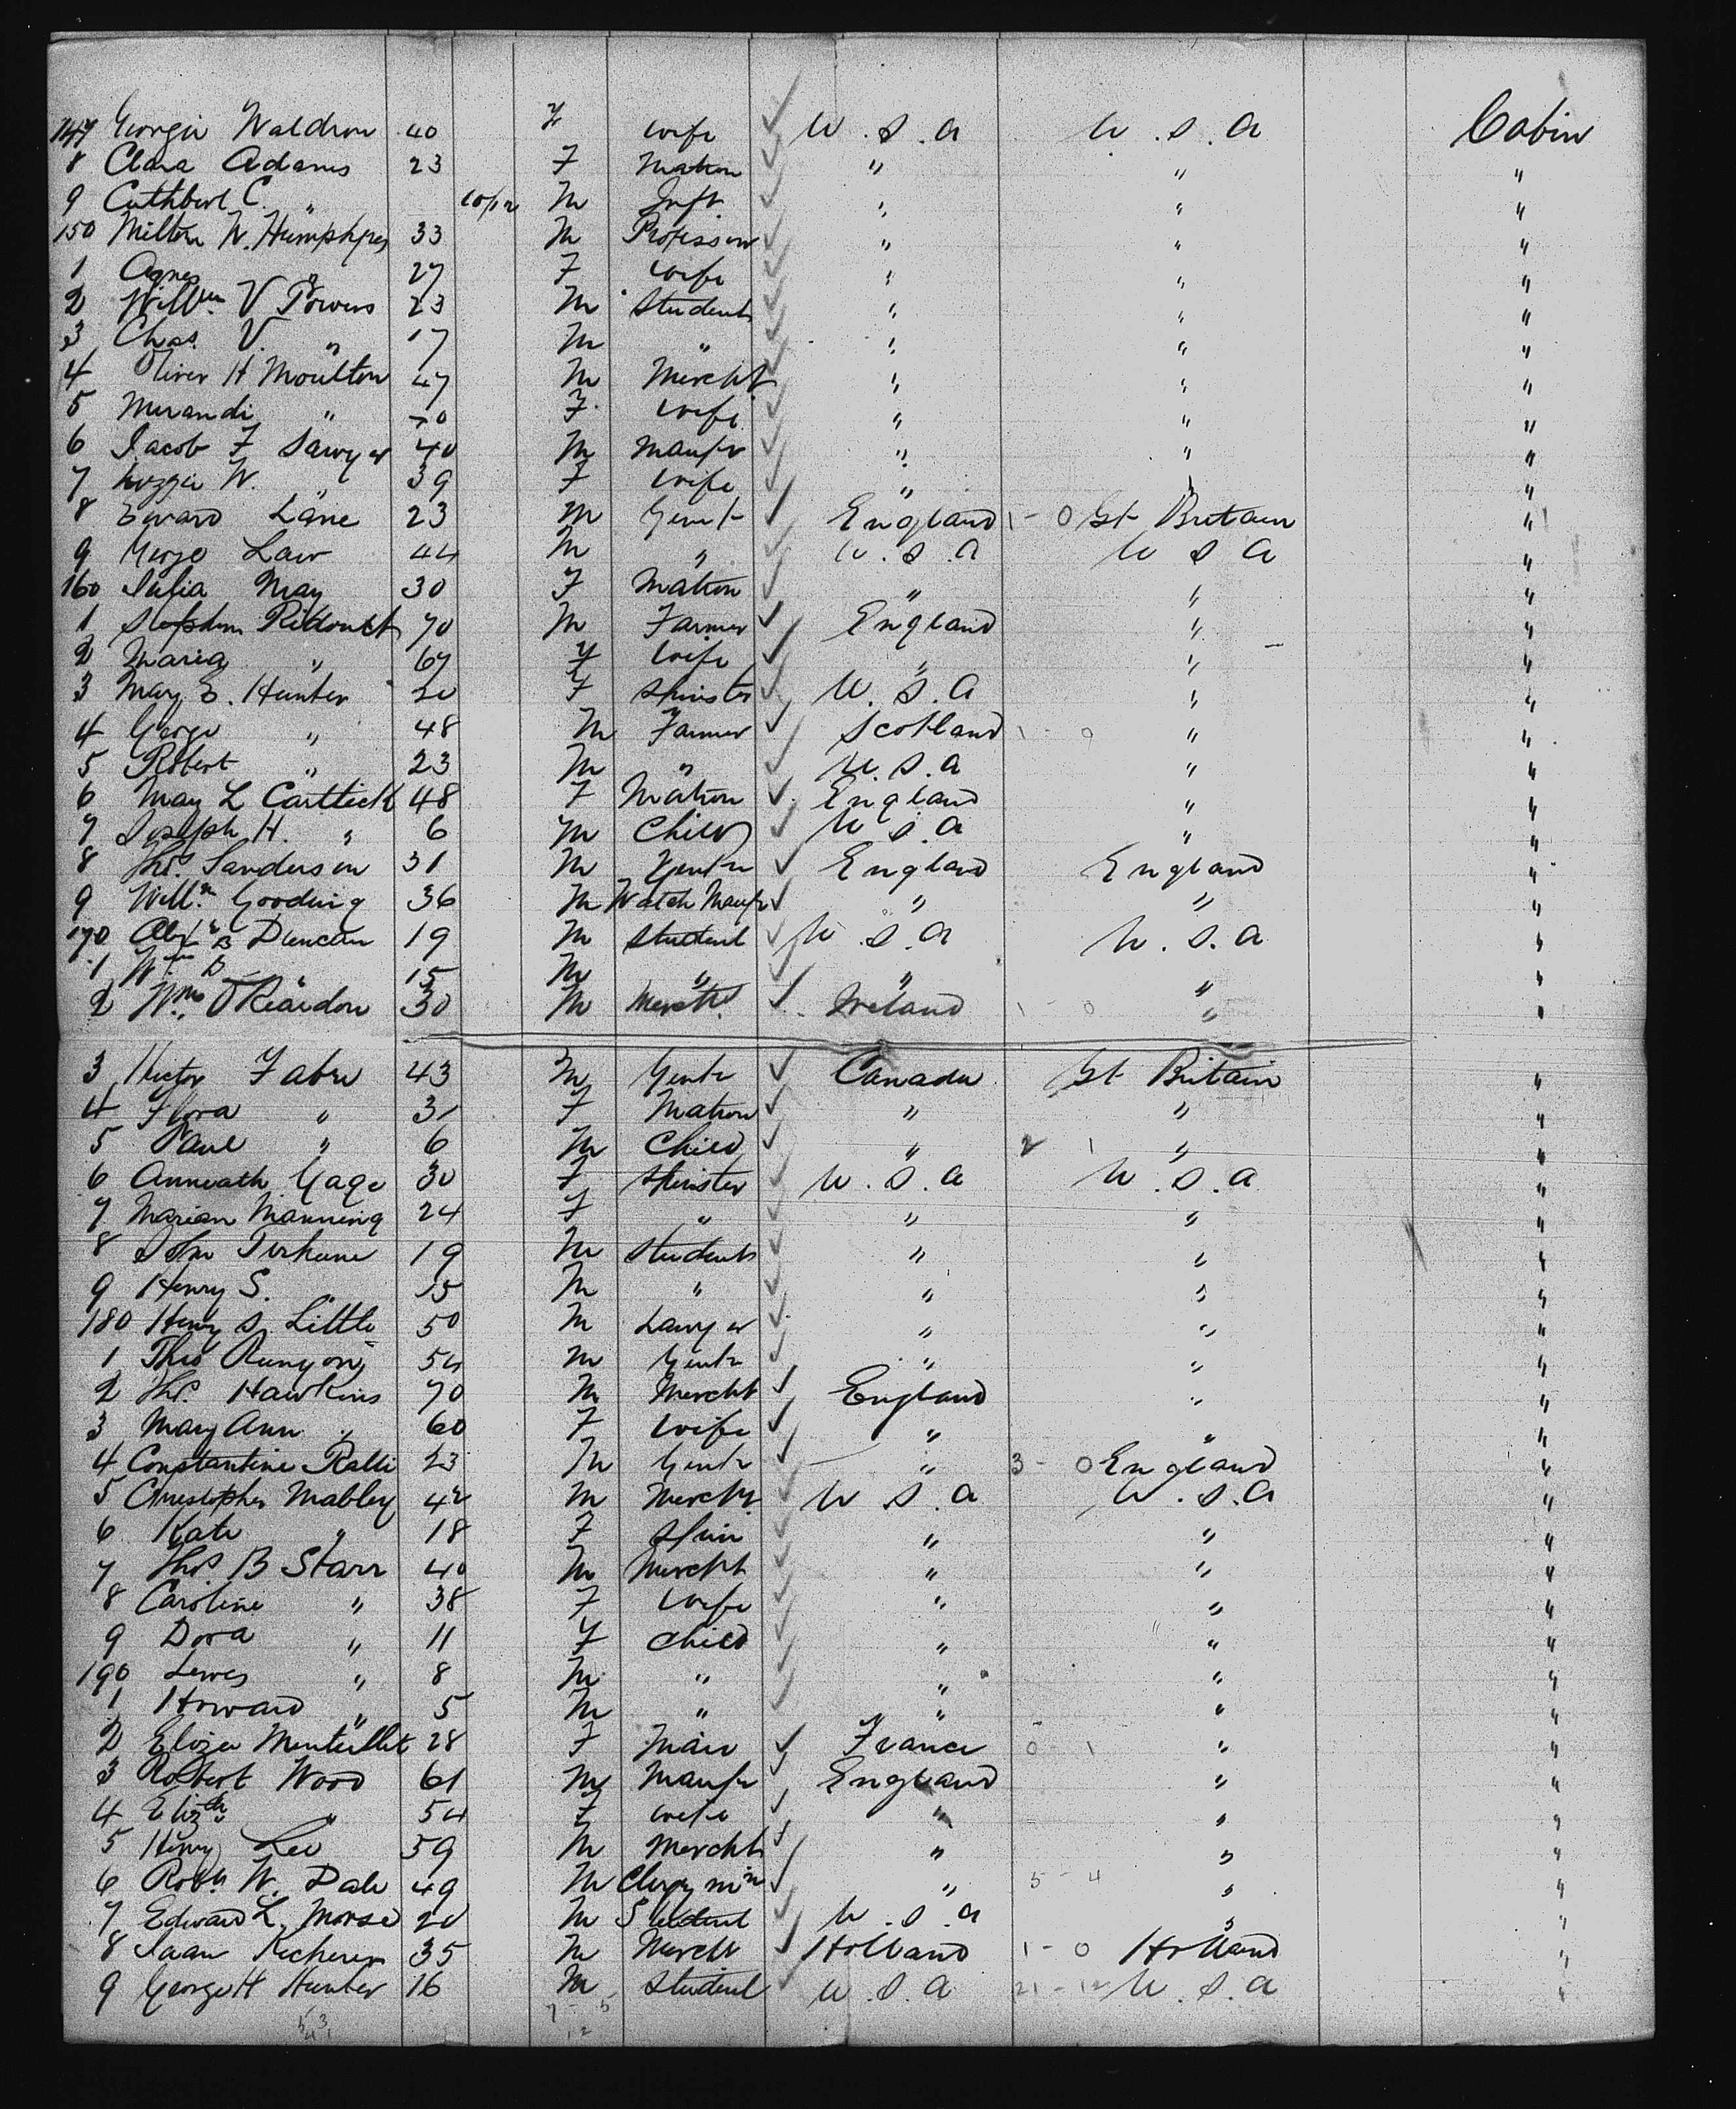 147 Georgie Waldron 40 F Wife U.S.A U.S.A Cabin
8 Clara Adams 23 F Matron " " "
9 Cuthbert C. " 10/12 M Inft " " "
150 Milton W. Humphreys 33 M Professor " " "
1 Agnes " 27 F Wife " " "
2 Willm V Powers 23 M Student " " "
3 Chas. V. " 17 M " " " "
4 Oliver H Moulton 47 M Mercht " " "
5 Merandi " F Wife " " "
6 Jacob F Sawyer 40 M Manfr " " "
7 Lizzie W. " 39 F Wife " " "
8 Edward Lane 23 M Gent England 1 - 0 Gt Britain "
9 George Law 44 M " U.S.A U S A "
160 Julia May 30 F Matron " " "
1 Stephen Ridoutt 70 M Farmer England " "
2 Maria " 67 F Wife " " "
3 Mary E. Hunter 20 F Spinster U.S.A " "
4 George " 48 M Farmer Scotland 1 - 0 " "
5 Robert " 23 M " U.S.A " "
6 May L Carttick 48 F Matron England " "
7 Joseph H. " 6 M Child U S A " "
8 Thos. Sanderson 31 M Gentn England England "
9 Willm Gooding 36 M Watch Manfr " " "
170 Alexr B Duncan 19 M Student U.S.A U.S.A "
1 Wm B " 15 M " " " "
2 Wm. O'Reardon 30 M Mercht. Ireland 1 - 0 " "
3 Hector Fabre 43 M Gentn Canada Gt Britain "
4 Flora " 31 F Matron " " "
5 Paul " 6 M Child " 2 1 " "
6 Anneath Gage 30 F Spinster U.S.A U.S.A "
7 Marian Manning 24 F " " " "
8 John Terhune 19 M Student " " "
9 Henry S. " 15 M " " " "
180 Henry S. Little 50 M Lawyer " " "
1 Theo Runyon 54 M Gentn " " "
2 Thos. Hawkins 70 M Mercht England " "
3 Mary Ann " 60 F Wife " " "
4 Constantine Ralli 23 M Gentn " 3 - 0 England "
5 Christopher Mabley 42 M Mercht U S A U.S.A "
6 Kate " 18 F Spin " " "
7 Thos. B Starr 40 M Mercht " " "
8 Caroline " 38 F Wife " " "
9 Dora " 11 F Child " " "
190 Lewes " 8 M " " " "
1 Howard " 5 M " " " "
2 Eliza 28 F Maid France 0 - 1 " "
3 Robert Wood 61 M Manfr England " "
4 Elizth " 54 F Wife " " "
5 Henry Lee 59 M Mercht " " "
6 Robt. W. Dale 49 M Clergymn " 5 - 4 " "
7 Edward L. Morse 20 M Student U.S.A " "
8 35 M Mercht Holland 1 - 0 Holland "
9 George H Hunter 16 M Student U.S.A 21 - 12 U.S.A "